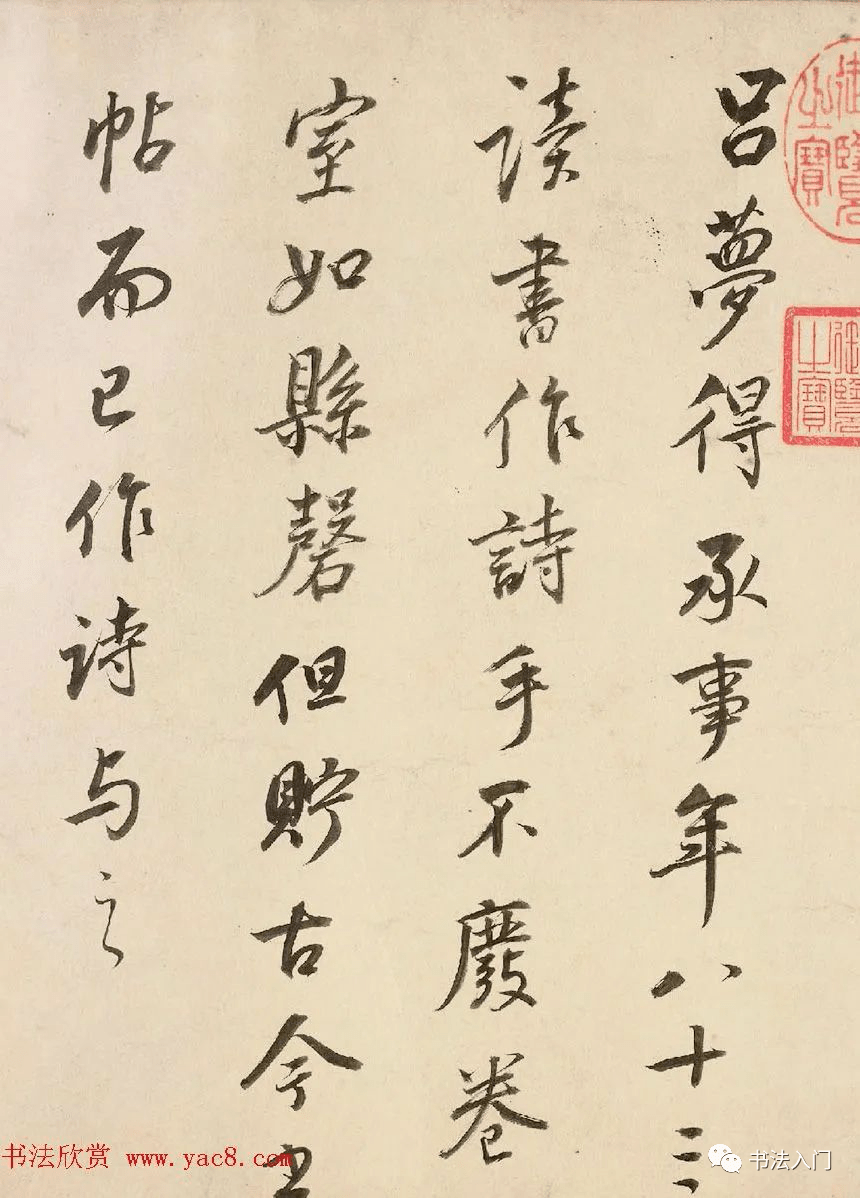 御覽之寶
御覽之寶
吕夢得承事年八十三
讀書作詩手不廢卷
室如縣磬但貯古今
帖而已作詩与之
书法欣赏 www.yac8.com
书法入门